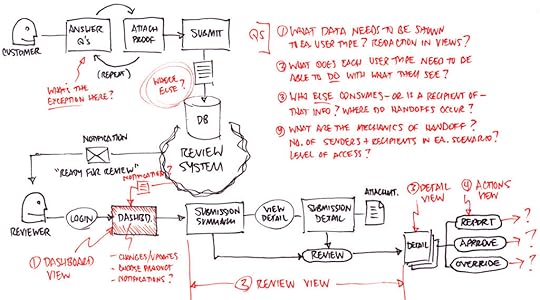 ANSWER
Q's
ATTACH
PROOF
SUBMIT
CUSTOMER
(REPEAT)
WHAT'S THE
EXCEPTION HERE?
WHERE
ELSE?
DB
REVIEW
SYSTEM
QS
① WHAT DATA NEEDS TO BE SHOWN
TO EA USER TYPE? REDACTION IN VIEWS?
② WHAT DOES EACH USER TYPE NEED TO BE
ABLE TO DO WITH WHAT THEY SEE?
③ WHO ELSE CONSUMES - OR IS A RECIPIENT OF -
THAT INFO? WHERE DO HANDOFFS OCCUR?
④ WHAT ARE THE MECHANICS OF HANDOFF?
NO. OF SENDERS & RECIPIENTS IN EA. SCENARIO?
LEVEL OF ACCESS?
NOTIFICATION
"READY FOR REVIEW"
NOTIFICATION?
REVIEWER
LOGIN
DASHBD.
SUBMISSION
SUMMARY
VIEW
DETAIL
SUBMISSION
DETAIL
ATTACHMT.
REVIEW
③ DETAIL
VIEW
④ ACTIONS
VIEW
DETAIL
REPORT
?
APPROVE
?
OVERRIDE
?
① DASHBOARD
VIEW
- CHANGES/UPDATES
- NOTIFICATIONS?
② REVIEW VIEW